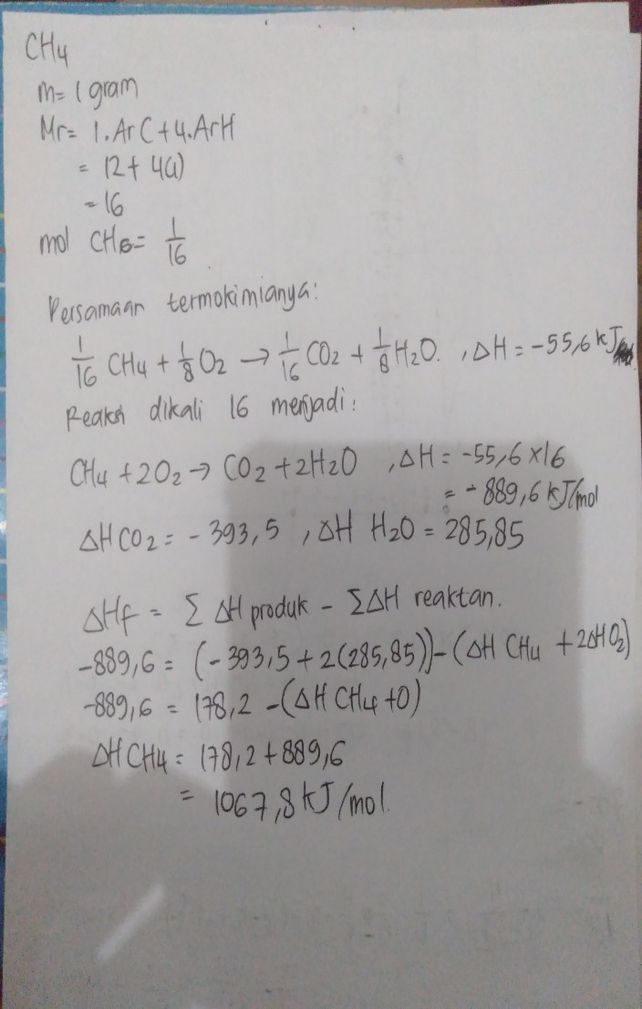 CH4
m= 1 gram
Mr= 1.Ar C + 4.Ar H
= 12 + 4(1)
= 16
mol CH4= 1/16
Persamaan termokimianya:
1/16 CH4 + 1/8 O2 → 1/16 CO2 + 1/8 H2O. , ΔH = -55,6 kJ
Reaksi dikali 16 menjadi:
CH4 + 2O2 → CO2 + 2H2O , ΔH = -55,6 × 16
= -889,6 kJ/mol
ΔH CO2 = - 393,5 , ΔH H2O = 285,85
ΔHf = Σ ΔH produk - ΣΔH reaktan.
-889,6 = (-393,5 + 2(285,85)) - (ΔH CH4 + 2ΔH O2)
-889,6 = 178,2 - (ΔH CH4 + 0)
ΔH CH4 = 178,2 + 889,6
= 1067,8 kJ/mol.